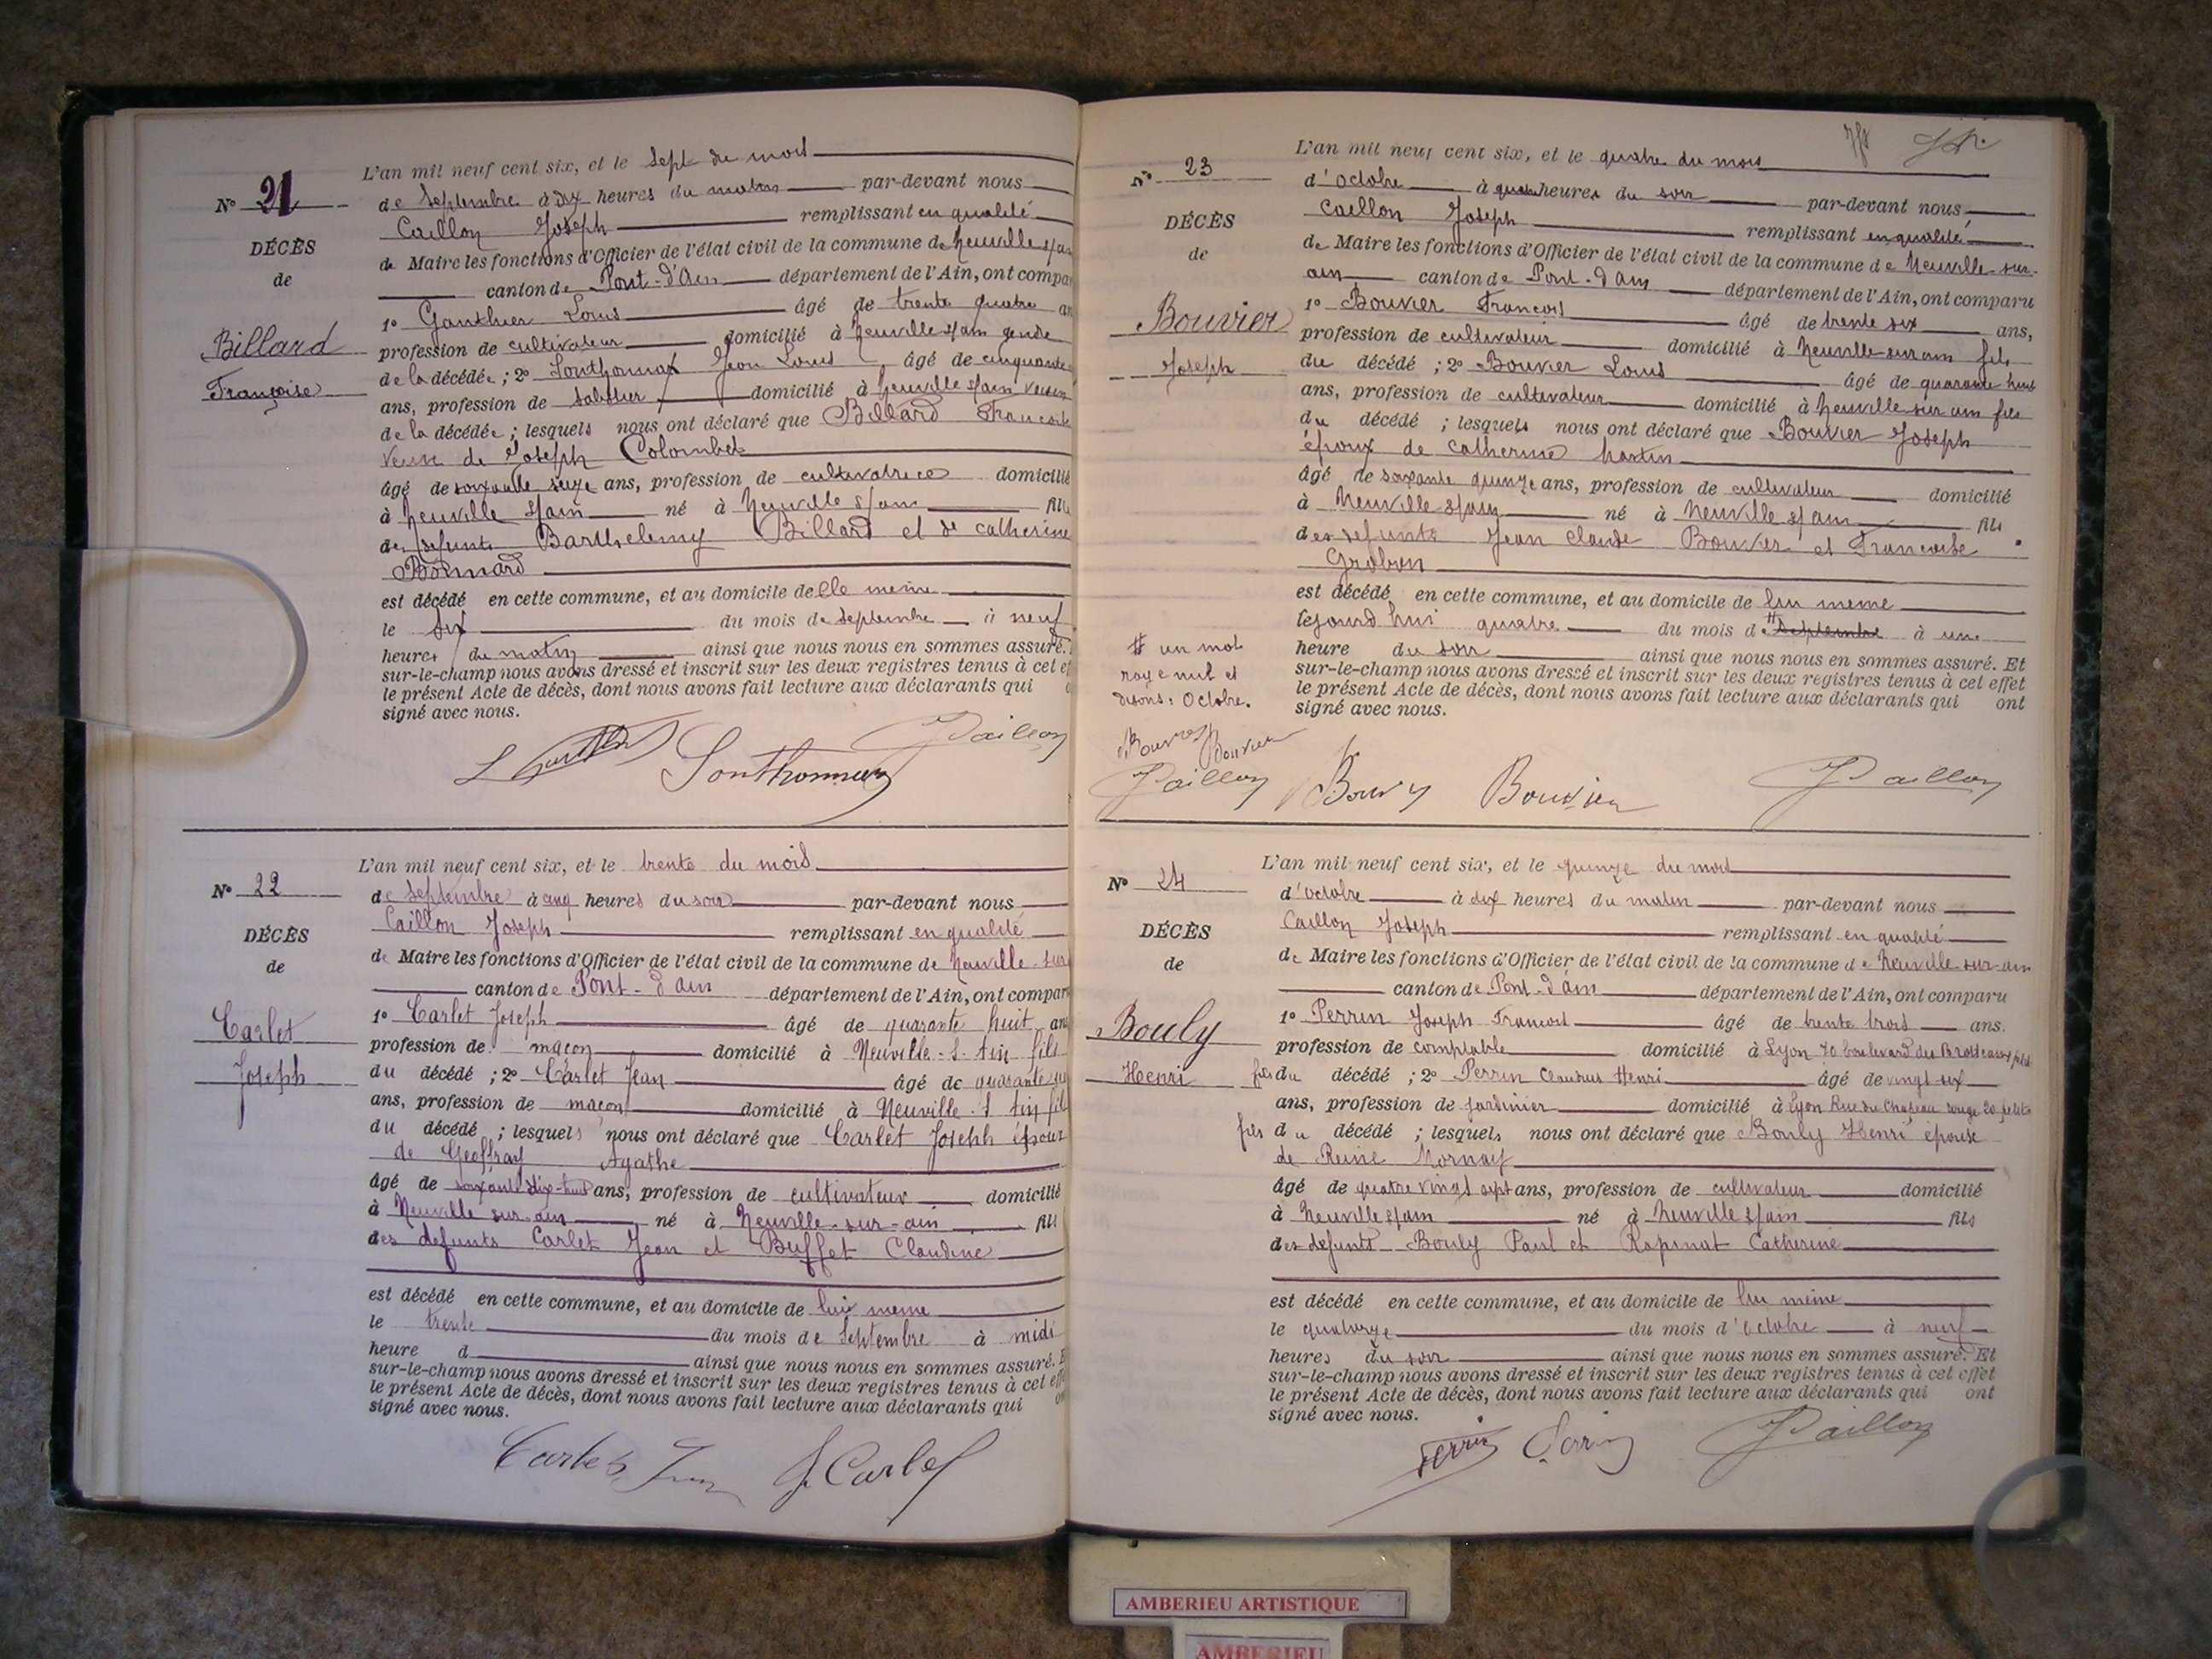 L'an mil neuf cent six, et le sept du mois
N° 21
de Septembre à dix heures du matin par-devant nous
Caillon Joseph remplissant en qualité
DÉCÈS
de Maire les fonctions d'Officier de l'état civil de la commune de Neuville s/ain
de
canton de Pont-d'Ain département de l'Ain, ont compa
1° Gauthier Louis âgé de trente quatre an
Billard
profession de cultivateur domicilié à Neuville s/ain gendre
Françoise
de la décédée ; 2° Sonthonnax Jean Louis âgé de cinquante
ans, profession de domicilié à Neuville s/ain
de la décédée ; lesquels nous ont déclaré que Billard Francoise
Veuve de Joseph Colombet
âgé de soixante seize ans, profession de cultivatrice domicilié
à Neuville s/ain né à Neuville s/ain fille
des defunts Barthelemy Billard et de Catherine
Bonnard
est décédé en cette commune, et au domicile de elle meme
le six du mois de septembre à neuf
heures du matin ainsi que nous nous en sommes assuré.
sur-le-champ nous avons dressé et inscrit sur les deux registres tenus à cet ef
le présent Acte de décès, dont nous avons fait lecture aux déclarants qui
signé avec nous.
Sonthonnax JCaillon
L'an mil neuf cent six, et le trente du mois
N° 22
de septembre à cinq heures du soir par-devant nous
Caillon Joseph remplissant en qualité
DÉCÈS
de Maire les fonctions d'Officier de l'état civil de la commune de Neuville-sur
de
canton de Pont-d'ain département de l'Ain, ont compar
1° Carlet Joseph âgé de quarante huit an
Carlet
profession de maçon domicilié à Neuville-s-Ain fils
Joseph
du décédé ; 2° Carlet Jean âgé de quarante
ans, profession de maçon domicilié à Neuville s Ain fils
du décédé ; lesquels nous ont déclaré que Carlet Joseph époux
de Geoffray Agathe
âgé de soixante dix-huit ans, profession de cultivateur domicilié
à Neuville sur-ain né à Neuville-sur-ain fils
des defunts Carlet Jean et Buffet Claudine
est décédé en cette commune, et au domicile de lui meme
le trente du mois de Septembre à midi
heure d ainsi que nous nous en sommes assuré. E
sur-le-champ nous avons dressé et inscrit sur les deux registres tenus à cet effe
le présent Acte de décès, dont nous avons fait lecture aux déclarants qui on
signé avec nous.
Carlet Jean J. Carlet
L'an mil neuf cent six, et le quatre du mois
N° 23
d'octobre à quatre heures du soir par-devant nous
Caillon Joseph remplissant en qualité
DÉCÈS
de Maire les fonctions d'Officier de l'état civil de la commune de Neuville-sur-
de
ain canton de Pont-d'ain département de l'Ain, ont comparu
1° Bouvier Francois âgé de trente six ans,
Bouvier
profession de cultivateur domicilié à Neuville-sur ain fils
Joseph
du décédé ; 2° Bouvier Louis âgé de quarante huit
ans, profession de cultivateur domicilié à Neuville sur ain fils
du décédé ; lesquels nous ont déclaré que Bouvier Joseph
époux de Catherine Martin
âgé de soixante quinze ans, profession de cultivateur domicilié
à Neuville s/ain né à Neuville s/ain fils
des defunts Jean Claude Bouvier et Francoise
Grobon
est décédé en cette commune, et au domicile de lui meme
lejourd'hui quatre du mois d # Septembre à une
heure du soir ainsi que nous nous en sommes assuré. Et
sur-le-champ nous avons dressé et inscrit sur les deux registres tenus à cet effet
le présent Acte de décès, dont nous avons fait lecture aux déclarants qui ont
signé avec nous.
# un mot
rayé nul et
disons: Octobre.
Bouvier Bouvier
JCaillon Bouvier Bouvier JCaillon
L'an mil neuf cent six, et le quinze du mois
N° 24
d'octobre à dix heures du matin par-devant nous
Caillon Joseph remplissant en qualité
DÉCÈS
de Maire les fonctions d'Officier de l'état civil de la commune de Neuville-sur-ain
de
canton de Pont-d'ain département de l'Ain, ont comparu
1° Perrin Joseph Francois âgé de trente trois ans.
Bouly
profession de comptable domicilié à Lyon 70 boulevard des Brotteaux petit
Henri
fils du décédé ; 2° Perrin Claudius Henri âgé de vingt six
ans, profession de jardinier domicilié à Lyon Rue du Chapeau rouge 20 petit
fils du décédé ; lesquels nous ont déclaré que Bouly Henri épouse
de Reine Mornay
âgé de quatre vingt sept ans, profession de cultivateur domicilié
à Neuville s/ain né à Neuville s/ain fils
des defunts Bouly Paul et Rapinat Catherine
est décédé en cette commune, et au domicile de lui meme
le quatorze du mois d'octobre à neuf
heures du soir ainsi que nous nous en sommes assuré. Et
sur-le-champ nous avons dressé et inscrit sur les deux registres tenus à cet effet
le présent Acte de décès, dont nous avons fait lecture aux déclarants qui ont
signé avec nous.
Perrin Perrin JCaillon
AMBERIEU ARTISTIQUE
AMBERIEU